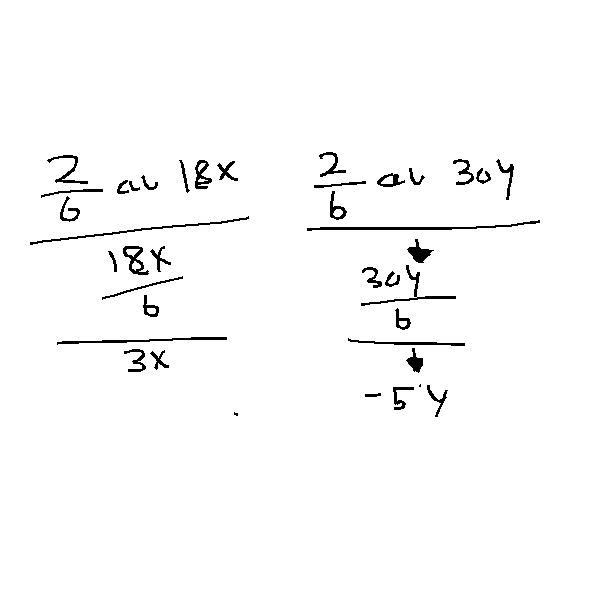 2/6 av 18x
18x/6
3x
2/6 av 30y
30y/6
-5y